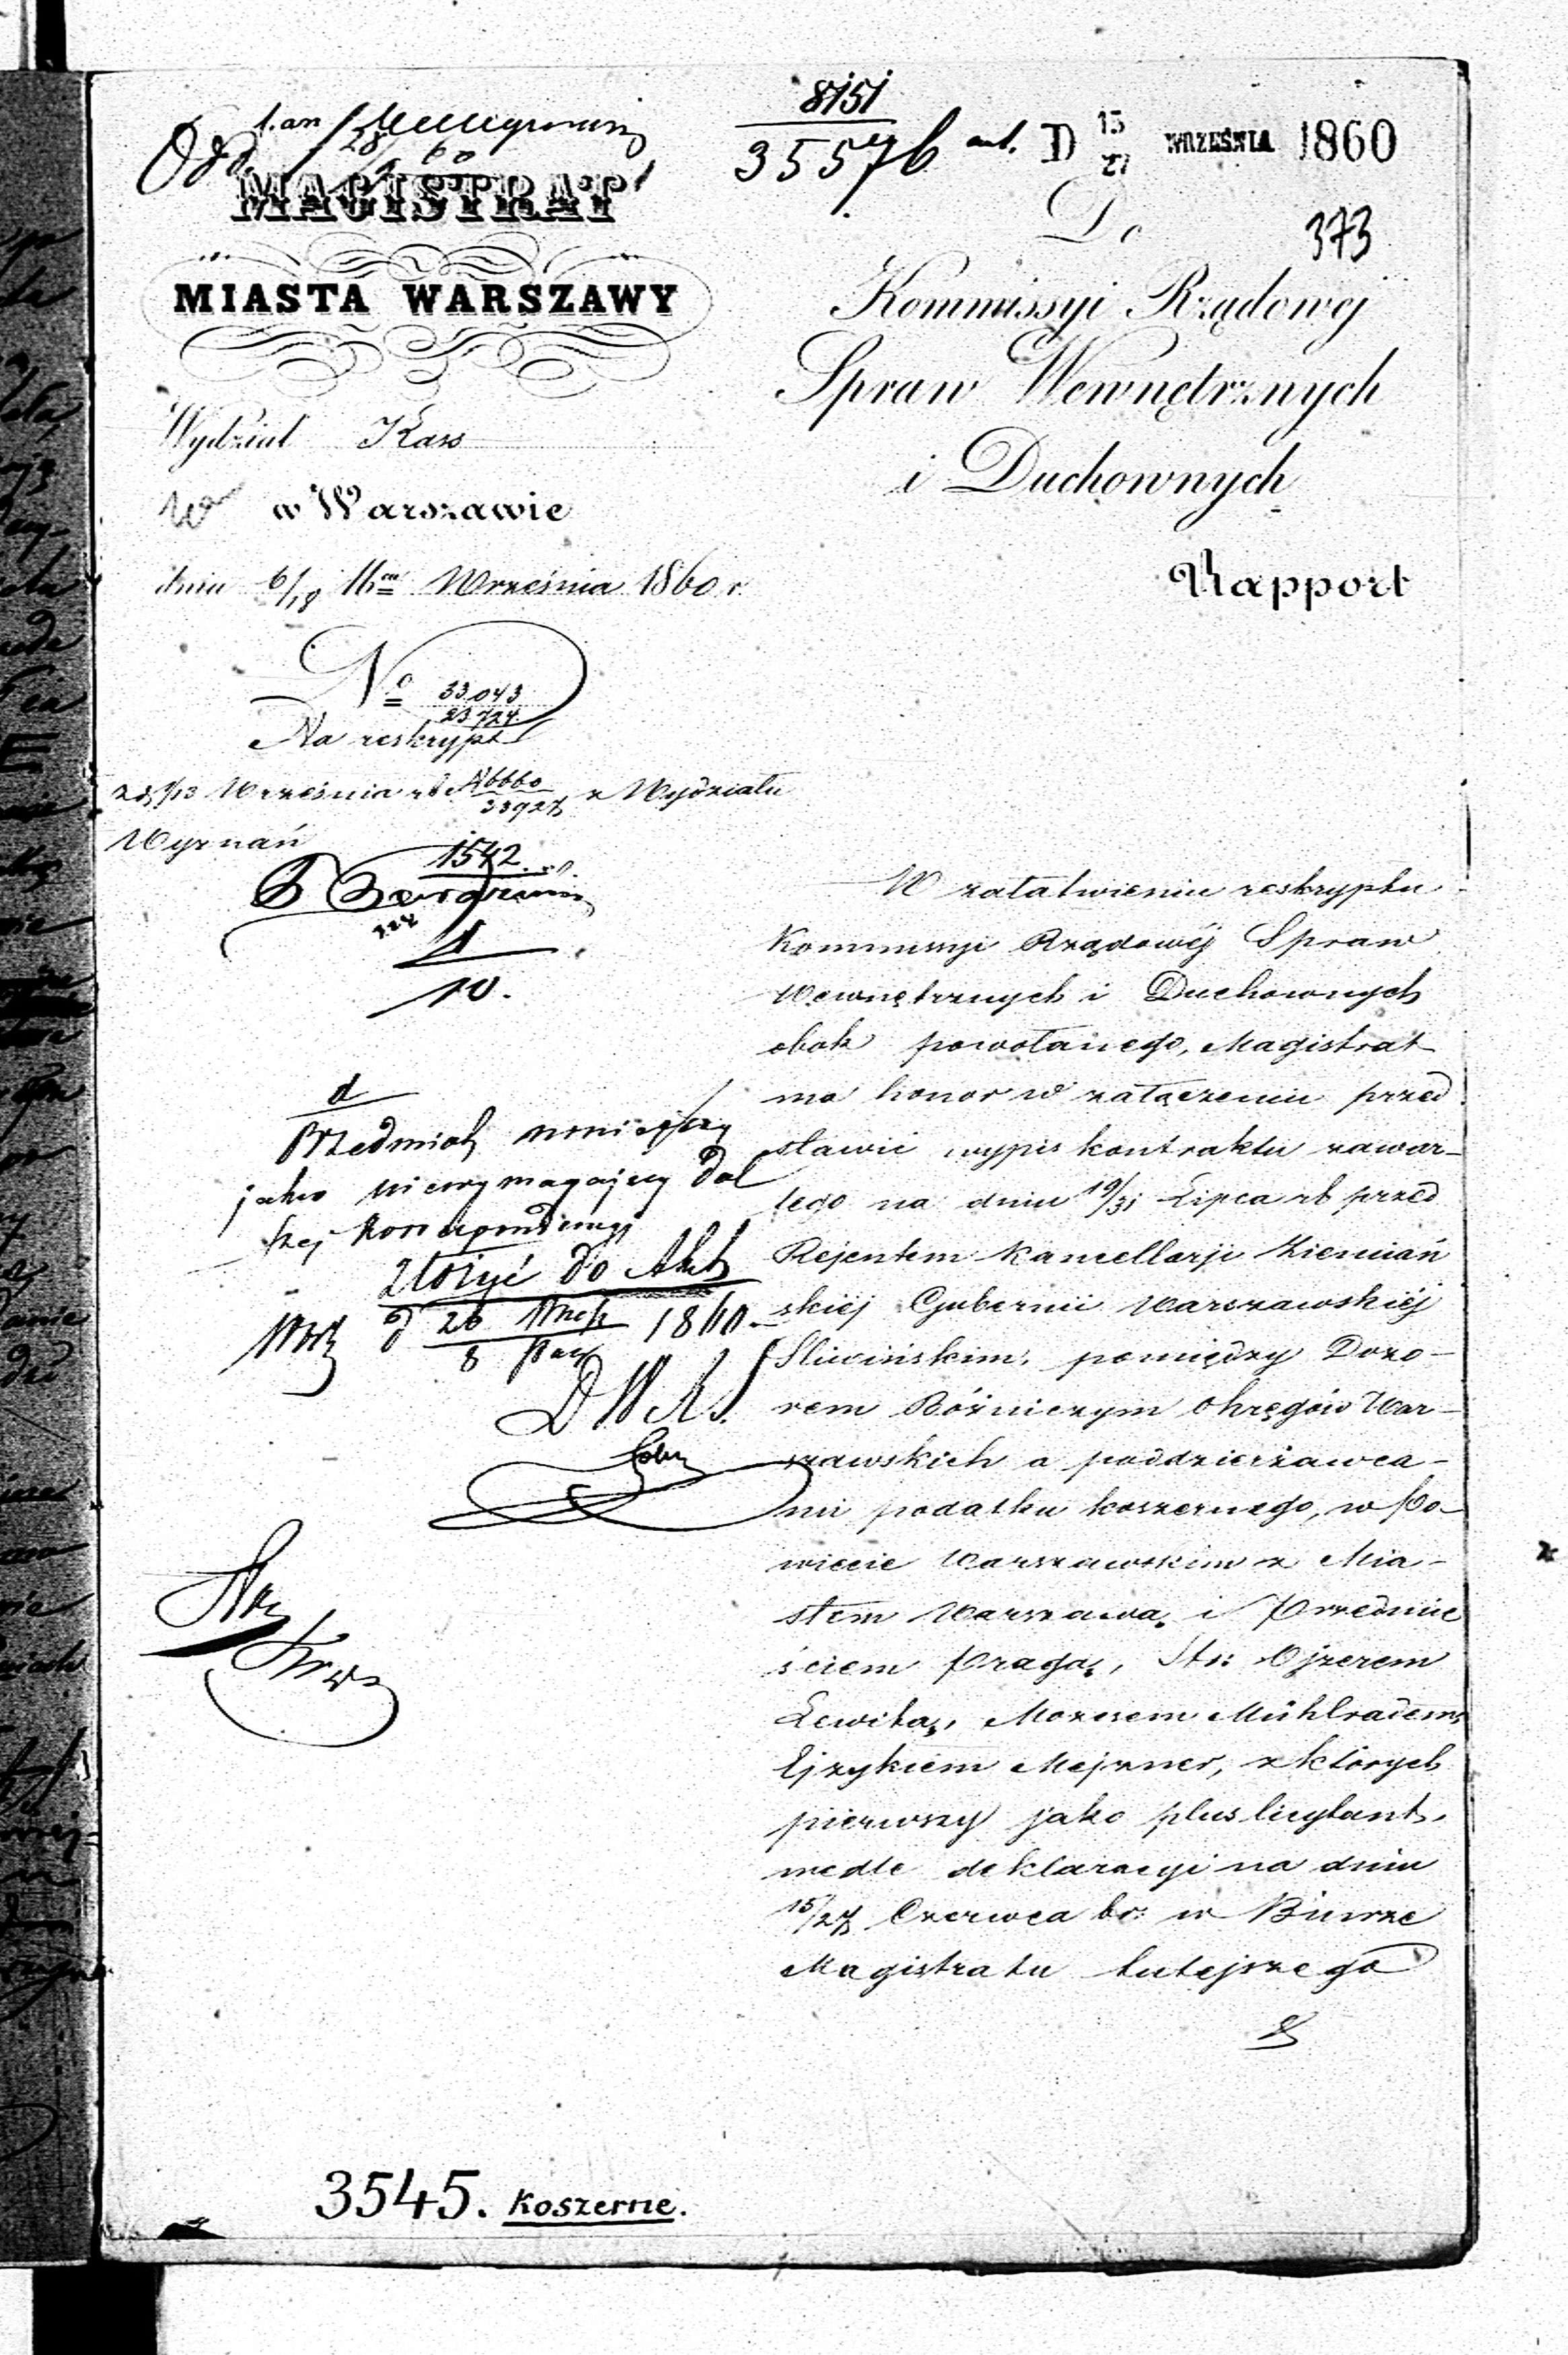 8151
35576
D 15/27 WRZEŚNIA 1860
373
MAGISTRAT
MIASTA WARSZAWY
Wydział Kass
w Warszawie
dnia 6/18 Września 1860 r.
No 33043
23724
Na reskrypt
z d. 1/13 Września rb z Wydziału
Wyznań
1542
1
10.
d
Przedmiot niniejszy
jako niewymagający dal
szej korrespondencyi
złożyć do Akt
d 26
8
1860
Do
Kommissyi Rządowej
Spraw Wewnętrznych
i Duchownych
Rapport
W załatwieniu reskryptu
Kommissyi Rządowéj Spraw
Wewnętrznych i Duchownych
obok powołanego, Magistrat
ma honor w załączeniu przed
stawić wypis kontraktu zawar-
tego na dniu 19/31 Lipca rb przed
Rejentem Kancellarji Ziemiań
skiéj Gubernii Warszawskiéj
Śliwińskim, pomiędzy Dozo-
rem Bóżniczym Okręgów War-
szawskich a poddzierżawca-
mi podatku koszernego, w Po-
wiecie Warszawskim z Mia-
stem Warszawą i Przedmie
ściem Pragą, Stn: Ojzerem
Lewitą, Mozesem Mühlradem,
Ejzykiem Mejzner, z których
pierwszy jako plus licytant,
wedle deklaracyi na dniu
15/27 Czerwca br: w Biurze
Magistratu tutejszego
3545. Koszerne.